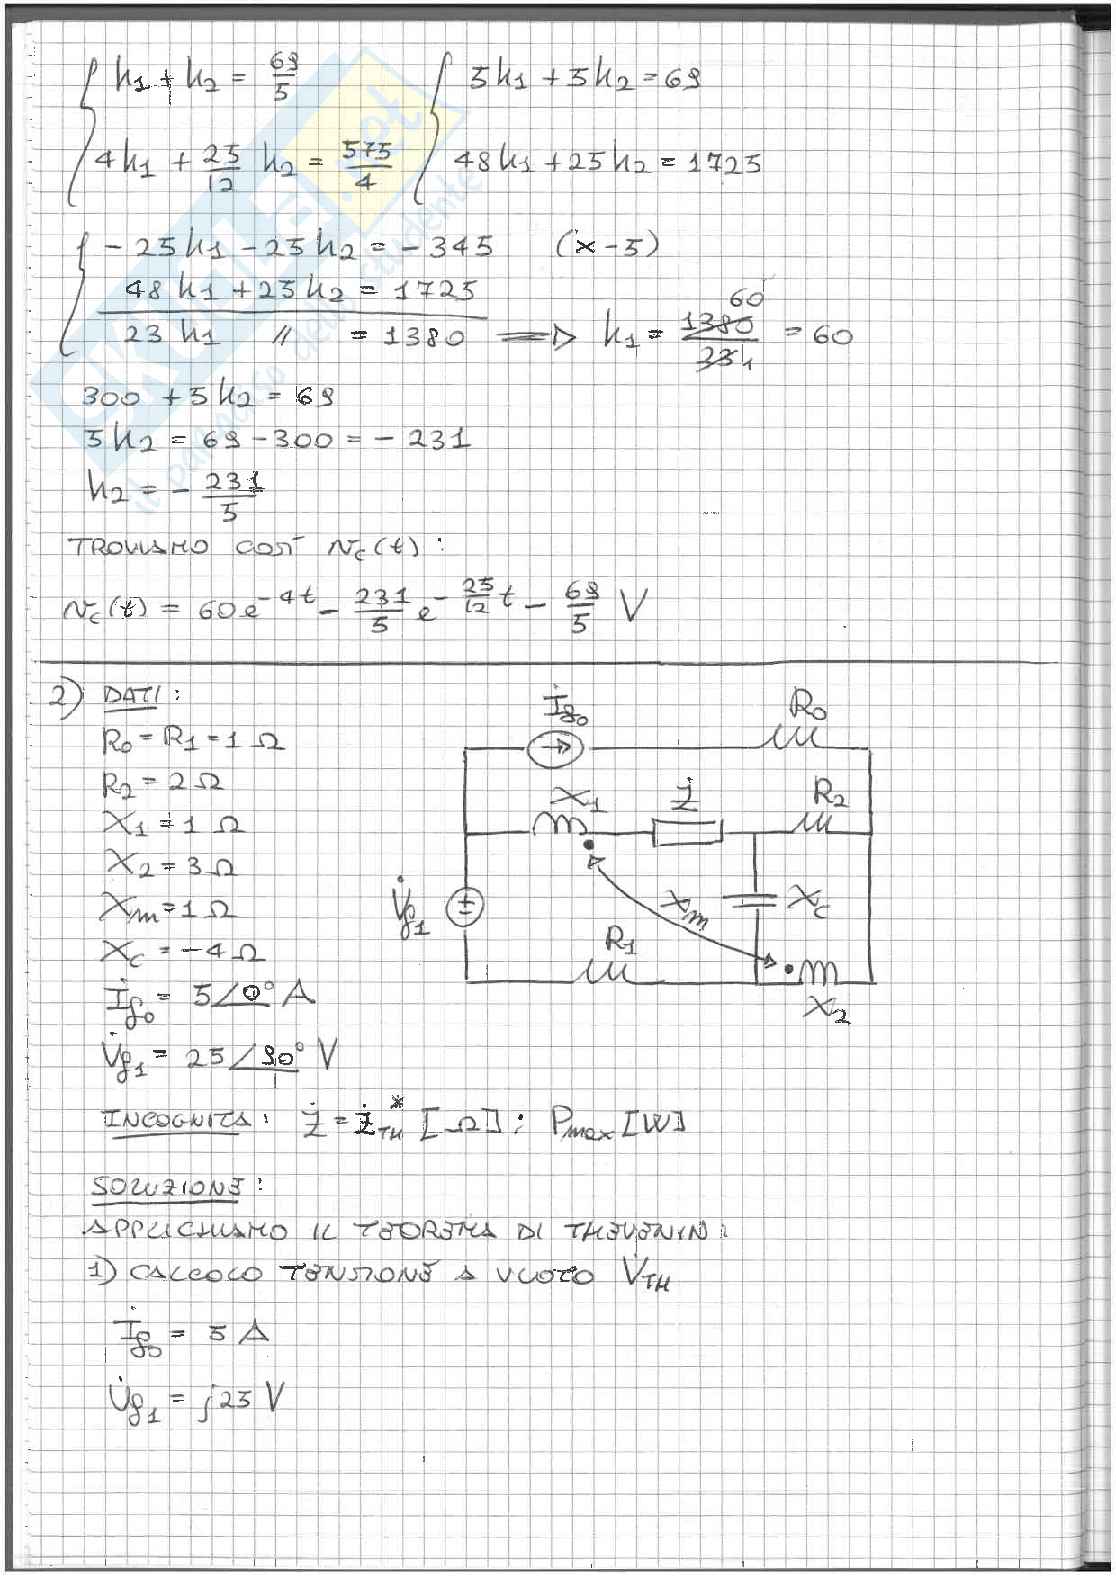 k1 + k2 = 69/5    5k1 + 5k2 = 69
4k1 + 25/12 k2 = 575/4    48k1 + 25k2 = 1725
- 25k1 - 25k2 = - 345    (x-5)
48k1 + 25k2 = 1725
23k1 // = 1380 ⟹ k1 = 1380/23 = 60
60
1
300 + 5k2 = 69
5k2 = 69 - 300 = - 231
k2 = - 231/5
TROVIAMO COSÌ Vc(t):
Vc(t) = 60e^-4t - 231/5 e^-25/12 t - 69/5 V
2) DATI:
R0 = R1 = 1 Ω
R2 = 2 Ω
X1 = 1 Ω
X2 = 3 Ω
Xm = 1 Ω
Xc = -4 Ω
İg0 = 5∠0° A
V̇g1 = 25∠90° V
İg0
R0
X1
Ż
R2
V̇g1
±
Xm
Xc
R1
X2
INCOGNITA: Ż = ŻTH* [Ω]; Pmax [W]
SOLUZIONE:
APPLICHIAMO IL TEOREMA DI THEVENIN:
1) CALCOLO TENSIONE A VUOTO V̇TH
İg0 = 5 A
V̇g1 = j25 V